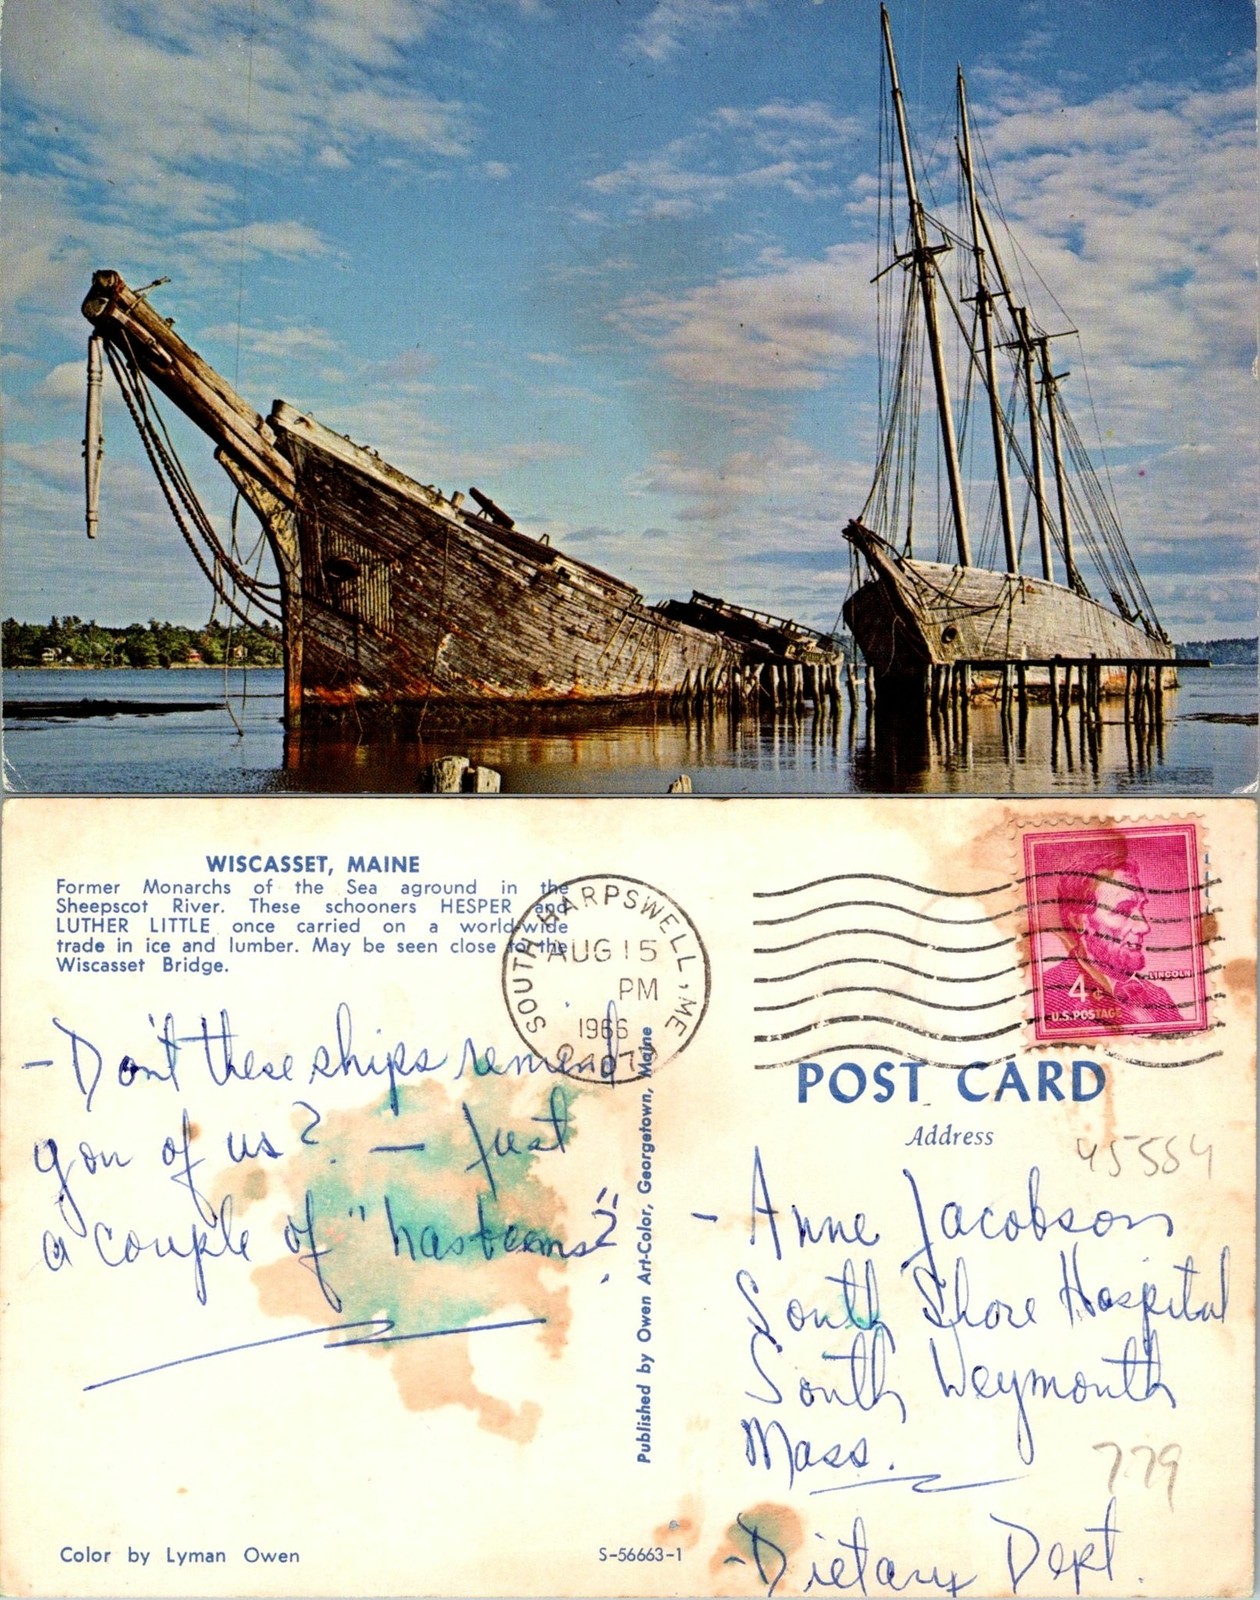 WISCASSET, MAINE
Former Monarchs of the Sea aground in the
Sheepscot River. These schooners HESPER and
LUTHER LITTLE once carried on a world-wide
trade in ice and lumber. May be seen close to the
Wiscasset Bridge.
SOUTH HARPSWELL, ME
AUG 15
PM
1966
LINCOLN
4¢
U.S. POSTAGE
- Don't these ships remind
you of us? — Just
a couple of "has beens"?
POST CARD
Address
45554
- Anne Jacobson
South Shore Hospital
South Weymouth
Mass.
779
- Dietary Dept.
Published by Owen Art-Color, Georgetown, Maine
Color by Lyman Owen
S-56663-1